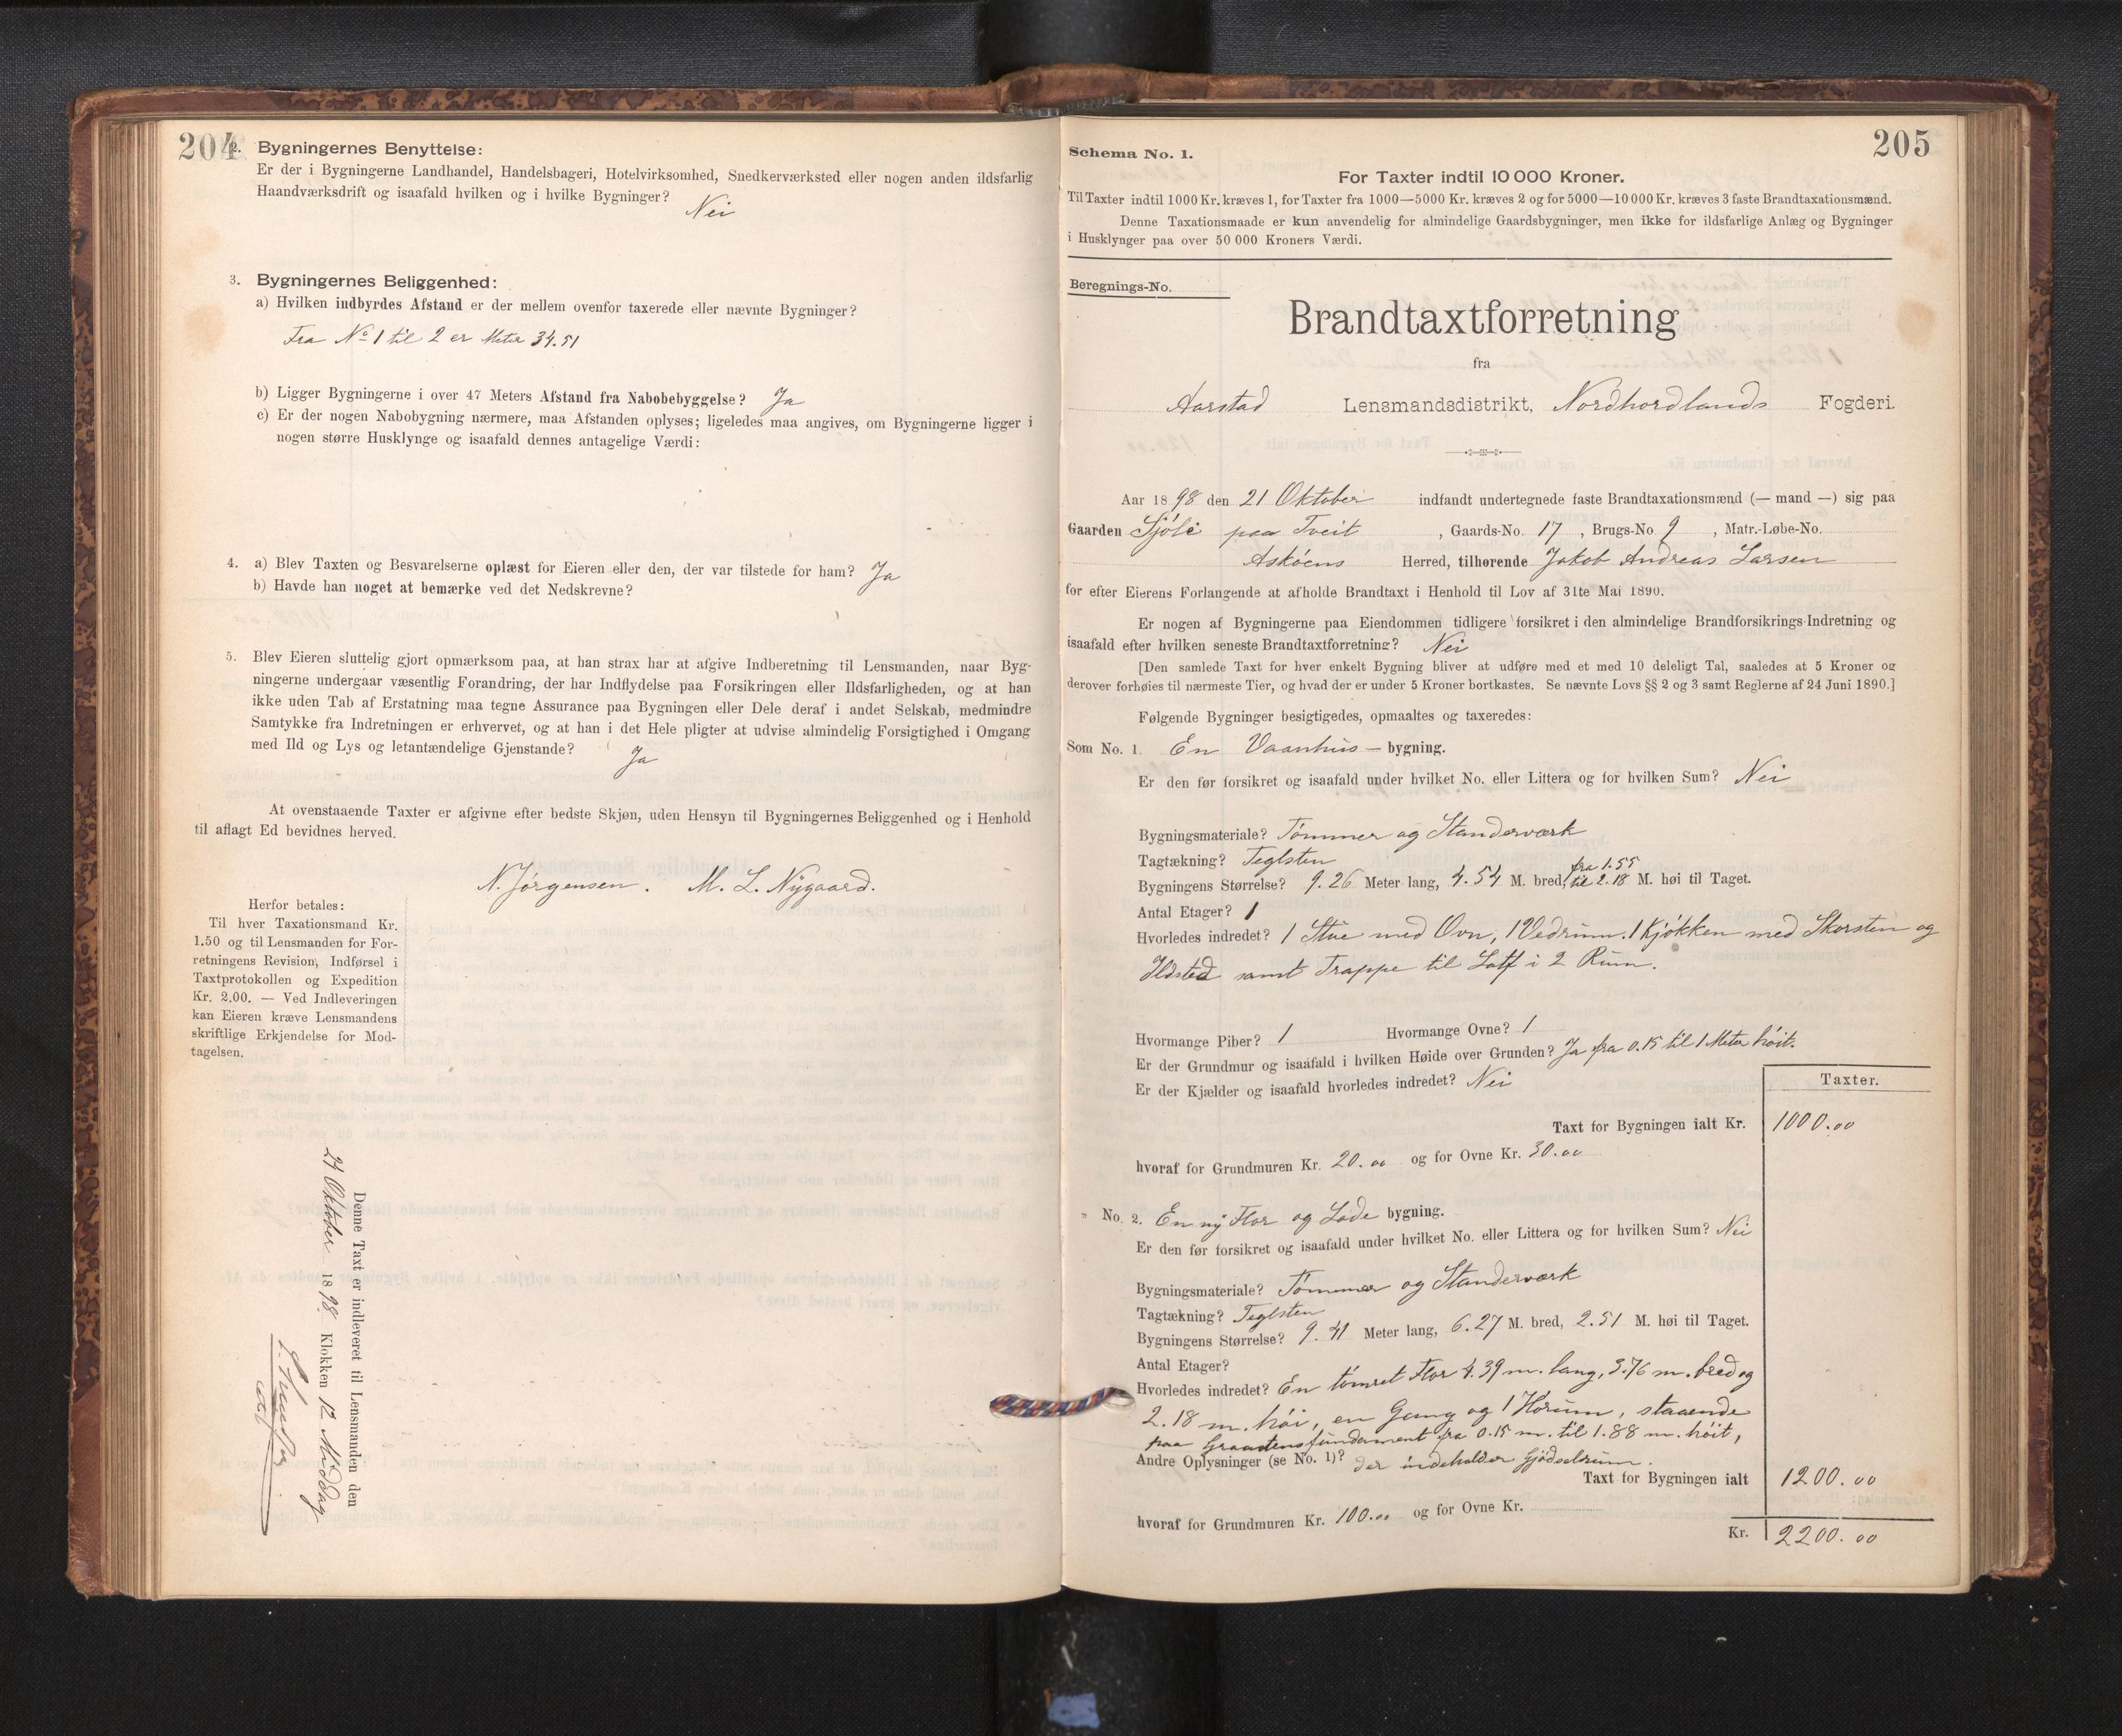 204
2. Bygningernes Benyttelse:
Er der i Bygningerne Landhandel, Handelsbageri, Hotelvirksomhed, Snedkerværksted eller nogen anden ildsfarlig
Haandværksdrift og isaafald hvilken og i hvilke Bygninger?
Nei
3. Bygningernes Beliggenhed:
a) Hvilken indbyrdes Afstand er der mellem ovenfor taxerede eller nævnte Bygninger?
Fra No 1 til 2 er Meter 34.51
b) Ligger Bygningerne i over 47 Meters Afstand fra Nabobebyggelse? Ja
c) Er der nogen Nabobygning nærmere, maa Afstanden oplyses; ligeledes maa angives, om Bygningerne ligger i
nogen større Husklynge og isaafald dennes antagelige Værdi:
4. a) Blev Taxten og Besvarelserne oplæst for Eieren eller den, der var tilstede for ham? Ja
b) Havde han noget at bemærke ved det Nedskrevne?
5. Blev Eieren sluttelig gjort opmærksom paa, at han strax har at afgive Indberetning til Lensmanden, naar Byg-
ningerne undergaar væsentlig Forandring, der har Indflydelse paa Forsikringen eller Ildsfarligheden, og at han
ikke uden Tab af Erstatning maa tegne Assurance paa Bygningen eller Dele deraf i andet Selskab, medmindre
Samtykke fra Indretningen er erhvervet, og at han i det Hele pligter at udvise almindelig Forsigtighed i Omgang
med Ild og Lys og letantændelige Gjenstande? Ja
At ovenstaaende Taxter er afgivne efter bedste Skjøn, uden Hensyn til Bygningernes Beliggenhed og i Henhold
til aflagt Ed bevidnes herved.
N. Jørgensen. M. L. Nygaard.
Herfor betales:
Til hver Taxationsmand Kr.
1.50 og til Lensmanden for For-
retningens Revision, Indførsel i
Taxtprotokollen og Expedition
Kr. 2.00. — Ved Indleveringen
kan Eieren kræve Lensmandens
skriftlige Erkjendelse for Mod-
tagelsen.
Denne Taxt er indleveret til Lensmanden den
24 Oktober 1898 Klokken 12 Middag
205
Schema No. 1.
For Taxter indtil 10 000 Kroner.
Til Taxter indtil 1000 Kr. kræves 1, for Taxter fra 1000—5000 Kr. kræves 2 og for 5000—10 000 Kr. kræves 3 faste Brandtaxationsmænd.
Denne Taxationsmaade er kun anvendelig for almindelige Gaardsbygninger, men ikke for ildsfarlige Anlæg og Bygninger
i Husklynger paa over 50 000 Kroners Værdi.
Beregnings-No.
Brandtaxtforretning
fra
Aarstad Lensmandsdistrikt, Nordhordlands Fogderi.
Aar 1898 den 21 Oktober indfandt undertegnede faste Brandtaxationsmænd (— mand —) sig paa
Gaarden Sjøli paa Tveit, Gaards-No. 17, Brugs-No 9, Matr.-Løbe-No.
Askøens Herred, tilhørende Jakob Andreas Larsen
for efter Eierens Forlangende at afholde Brandtaxt i Henhold til Lov af 31te Mai 1890.
Er nogen af Bygningerne paa Eiendommen tidligere forsikret i den almindelige Brandforsikrings-Indretning og
isaafald efter hvilken seneste Brandtaxtforretning? Nei
[Den samlede Taxt for hver enkelt Bygning bliver at udføre med et med 10 deleligt Tal, saaledes at 5 Kroner og
derover forhøies til nærmeste Tier, og hvad der er under 5 Kroner bortkastes. Se nævnte Lovs §§ 2 og 3 samt Reglerne af 24 Juni 1890.]
Følgende Bygninger besigtigedes, opmaaltes og taxeredes:
Som No. 1. En Vaanhus — bygning.
Er den før forsikret og isaafald under hvilket No. eller Littera og for hvilken Sum? Nei
Bygningsmateriale? Tømmer og Standerværk
Tagtækning? Teglsten
Bygningens Størrelse? 9.26 Meter lang, 4.54 M. bred, fra 1.55 til 2.18 M. høi til Taget.
Antal Etager? 1
Hvorledes indredet? 1 Stue med Ovn, 1 Vedrum. 1 Kjøkken med Skorsten og
Ildsted samt Trappe til Loft i 2 Rum.
Hvormange Piber? 1 Hvormange Ovne? 1
Er der Grundmur og isaafald i hvilken Høide over Grunden? Ja fra 0.15 til 1 Meter høit.
Er der Kjælder og isaafald hvorledes indredet? Nei
Taxter.
Taxt for Bygningen ialt Kr. 1000.00
hvoraf for Grundmuren Kr. 20.00 og for Ovne Kr. 30.00
" No. 2. En ny Flor og Lade bygning.
Er den før forsikret og isaafald under hvilket No. eller Littera og for hvilken Sum? Nei
Bygningsmateriale? Tømmer og Standerværk
Tagtækning? Teglsten
Bygningens Størrelse? 9.41 Meter lang, 6.27 M. bred, 2.51 M. høi til Taget.
Antal Etager?
Hvorledes indredet? En tømret Flor 4.39 m. lang, 3.76 m. bred og
2.18 m. høi, en Gang og 1 Hørum, staaende
paa Graastensfundament fra 0.15 m. til 1.88 m. høit,
Andre Oplysninger (se No. 1)? der indeholder Gjødselrum.
Taxt for Bygningen ialt 1200.00
hvoraf for Grundmuren Kr. 100.00 og for Ovne Kr.
Kr. 2200.00